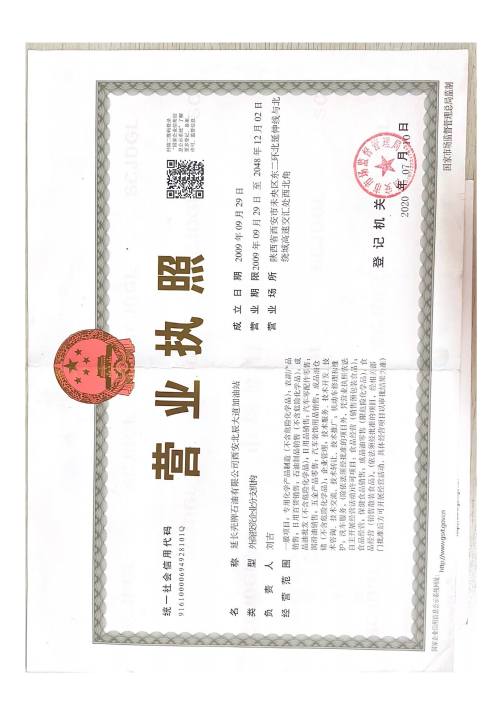 营业执照
统一社会信用代码
91610000694928101Q
扫描二维码登录
"国家企业信用信
息公示系统"了解
更多登记、备案、
许可、监管信息
名称 延长壳牌石油有限公司西安北辰大道加油站
类型 外商投资企业分支机构
负责人 刘吉
经营范围 一般项目：专用化学产品制造（不含危险化学品），农副产品
销售；日用百货销售；石油制品销售（不含危险化学品），成
品油批发（不含危险化学品）；日用品销售；汽车零配件零售；
润滑油销售；五金产品零售；汽车装饰用品销售；成品油仓
储（不含危险化学品）；企业管理；技术服务、技术开发、技
术咨询、技术交流、技术转让、技术推广；机动车修理和维
护；洗车服务。（除依法须经批准的项目外，凭营业执照依法
自主开展经营活动）许可项目：食品经营（销售预包装食品）；
食品经营；保健食品销售，成品油零售（限危险化学品）；食
品经营（销售散装食品）。（依法须经批准的项目，经相关部
门批准后方可开展经营活动，具体经营项目以审批结果为准）
成立日期 2009年09月29日
营业期限 2009年09月29日 至 2048年12月02日
营业场所 陕西省西安市未央区东二环北延伸线与北
绕城高速交汇处西北角
登记机关
2020年07月10日
国家企业信用信息公示系统网址：http://www.gsxt.gov.cn
国家市场监督管理总局监制